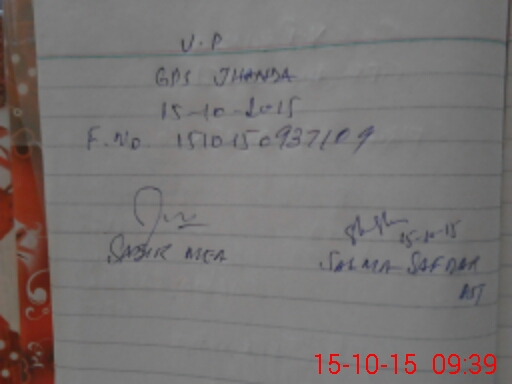 V.P
GPS JHANDA
15-10-2015
F.No. 1510150937109
15-10-15
SABIR MEA
SALMA SAFDAR
AST
15-10-15 09:39